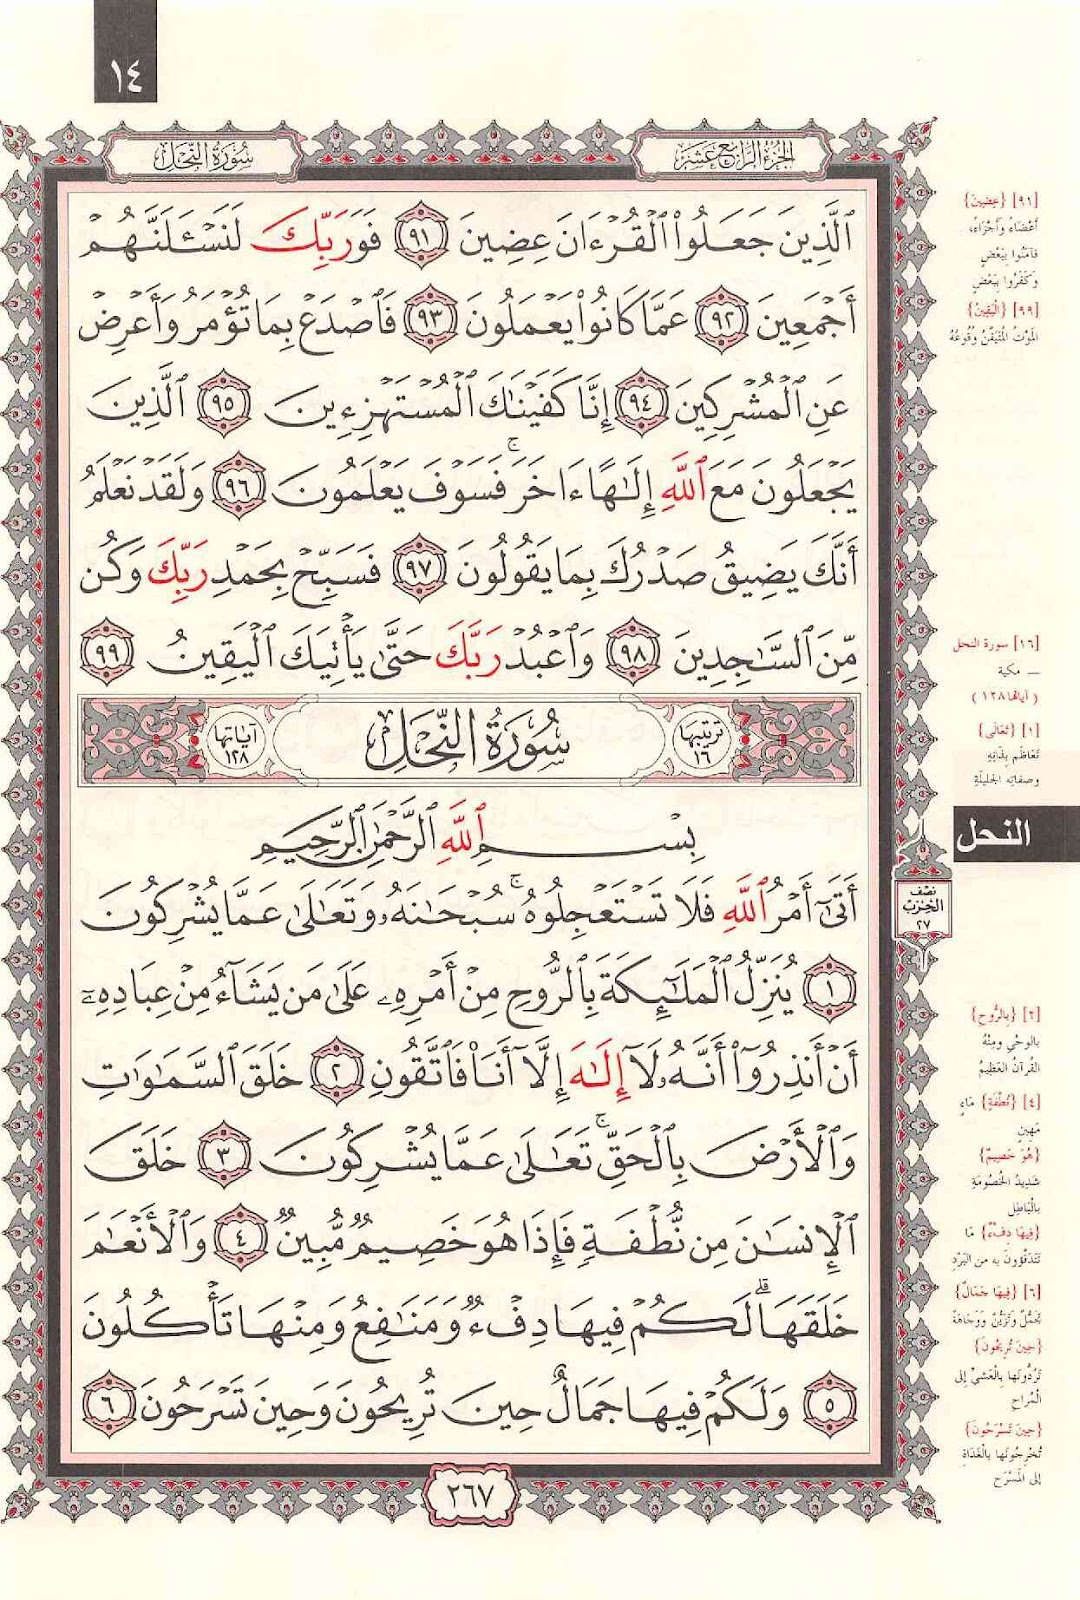 ١٤
الجزء الرابع عشر
سورة النحل
ٱلَّذِينَ جَعَلُوا۟ ٱلْقُرْءَانَ عِضِينَ ٩١ فَوَرَبِّكَ لَنَسْـَٔلَنَّهُمْ
أَجْمَعِينَ ٩٢ عَمَّا كَانُوا۟ يَعْمَلُونَ ٩٣ فَٱصْدَعْ بِمَا تُؤْمَرُ وَأَعْرِضْ
عَنِ ٱلْمُشْرِكِينَ ٩٤ إِنَّا كَفَيْنَـٰكَ ٱلْمُسْتَهْزِءِينَ ٩٥ ٱلَّذِينَ
يَجْعَلُونَ مَعَ ٱللَّهِ إِلَـٰهًا ءَاخَرَ ۚ فَسَوْفَ يَعْلَمُونَ ٩٦ وَلَقَدْ نَعْلَمُ
أَنَّكَ يَضِيقُ صَدْرُكَ بِمَا يَقُولُونَ ٩٧ فَسَبِّحْ بِحَمْدِ رَبِّكَ وَكُن
مِّنَ ٱلسَّـٰجِدِينَ ٩٨ وَٱعْبُدْ رَبَّكَ حَتَّىٰ يَأْتِيَكَ ٱلْيَقِينُ ٩٩
ترتيبها ١٦ سُورَةُ النَّحْلِ آياتها ١٢٨
بِسْمِ ٱللَّهِ ٱلرَّحْمَـٰنِ ٱلرَّحِيمِ
أَتَىٰٓ أَمْرُ ٱللَّهِ فَلَا تَسْتَعْجِلُوهُ ۚ سُبْحَـٰنَهُۥ وَتَعَـٰلَىٰ عَمَّا يُشْرِكُونَ
١ يُنَزِّلُ ٱلْمَلَـٰٓئِكَةَ بِٱلرُّوحِ مِنْ أَمْرِهِۦ عَلَىٰ مَن يَشَآءُ مِنْ عِبَادِهِۦٓ
أَنْ أَنذِرُوٓا۟ أَنَّهُۥ لَآ إِلَـٰهَ إِلَّآ أَنَا۠ فَٱتَّقُونِ ٢ خَلَقَ ٱلسَّمَـٰوَٰتِ
وَٱلْأَرْضَ بِٱلْحَقِّ ۚ تَعَـٰلَىٰ عَمَّا يُشْرِكُونَ ٣ خَلَقَ
ٱلْإِنسَـٰنَ مِن نُّطْفَةٍ فَإِذَا هُوَ خَصِيمٌ مُّبِينٌ ٤ وَٱلْأَنْعَـٰمَ
خَلَقَهَا ۗ لَكُمْ فِيهَا دِفْءٌ وَمَنَـٰفِعُ وَمِنْهَا تَأْكُلُونَ
٥ وَلَكُمْ فِيهَا جَمَالٌ حِينَ تُرِيحُونَ وَحِينَ تَسْرَحُونَ ٦
٢٦٧
[٩١] {عِضِينَ}
أَعْضَاءً وَأَجْزَاءً،
فآمَنُوا بِبَعْضٍ
وكَفَرُوا بِبَعْضٍ
[٩٩] {الْيَقِينُ}
المَوْتُ المُتَيَقَّنُ وُقُوعُهُ
[١٦] سورة النحل
ــ مكية
( آياتها ١٢٨ )
[١] {تَعَالَى}
تَعَاظَمَ بِذَاتِهِ
وصفاتِه الجليلَةِ
النحل
نصف
الحزب
٢٧
[٢] {بِالرُّوحِ}
بالوحْيِ ومِنْهُ
القُرآن العَظِيمُ
[٤] {نُطْفَةٍ} مَاءٍ
مَهِينٍ
{هُوَ خَصِيمٌ}
شَدِيدُ الخُصُومَةِ
بِالْبَاطِلِ
{فِيهَا دِفْءٌ} مَا
تَتَدَفَّؤونَ به من البَرْدِ
[٦] {فِيهَا جَمَالٌ}
تَجَمُّلٌ وَتَزَيُّنٌ وَوَجَاهَةٌ
{حِينَ تُرِيحُونَ}
تَرُدُّونَها بِالْعَشِيِّ إِلى
الْمُراحِ
{حِينَ تَسْرَحُونَ}
تُخْرِجُونَها بالْغَدَاةِ
إِلى المَسْرَحِ